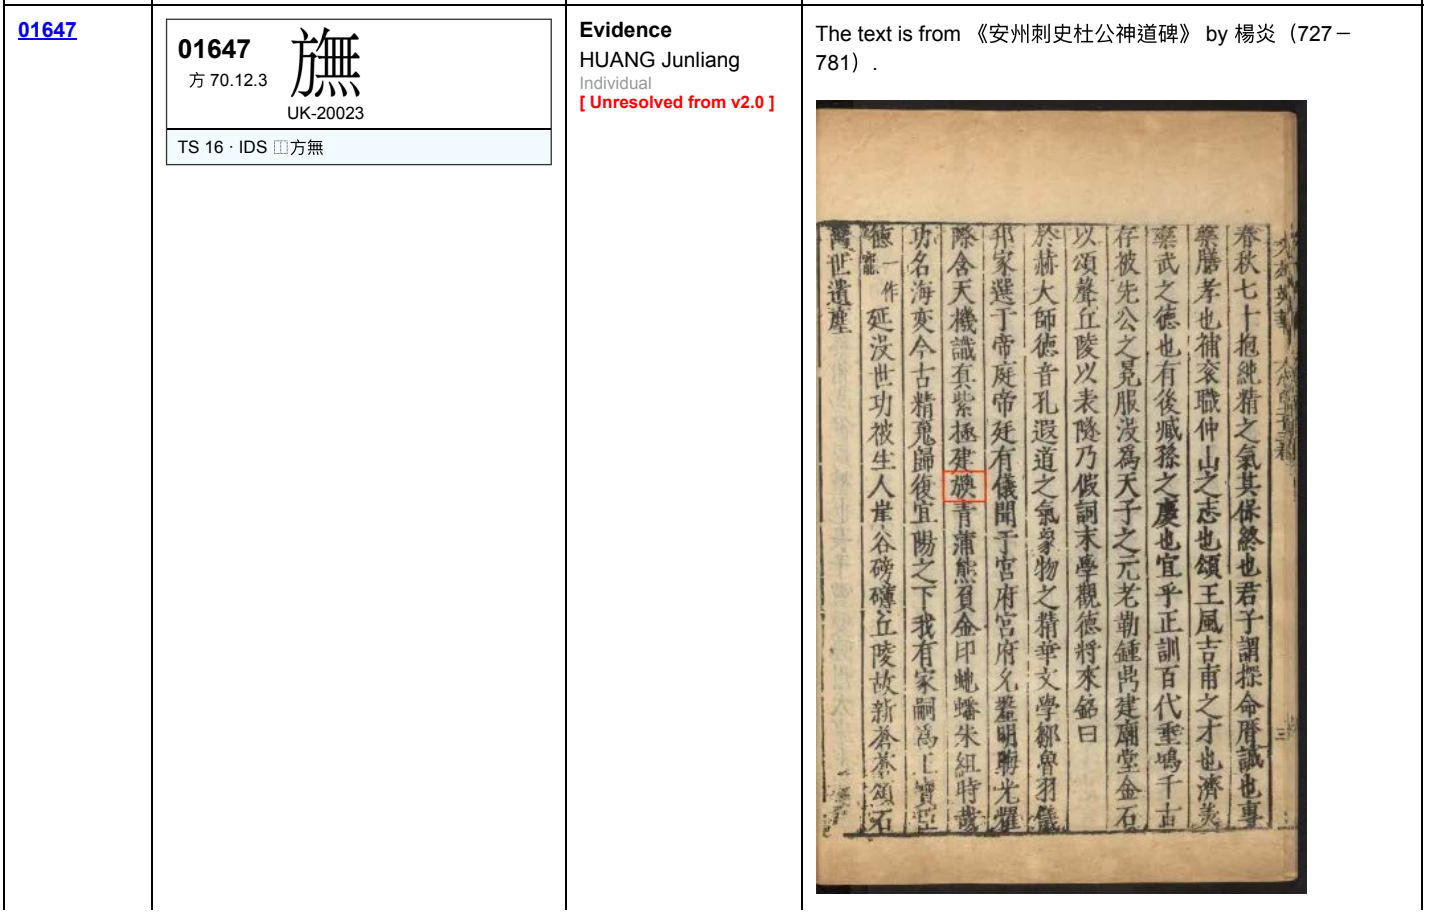 01647
01647
方 70.12.3
𣄰
UK-20023
TS 16 · IDS ⿰方無
Evidence
HUANG Junliang
Individual
[ Unresolved from v2.0 ]
The text is from 《安州刺史杜公神道碑》 by 楊炎（727－
781）.
春秋七十抱純精之氣其保終也君子謂探命曆誠也專
藥膳孝也補衮職仲山之志也頌王風吉甫之才也濟美
藥武之德也有後臧孫之慶也宜乎正訓百代垂鳴千古
存被先公之冕服没爲天子之元老勒鍾鼎建廟堂金石
以頌聲丘陵以表隧乃假詞末學觀德將來銘曰
於赫大師德音孔遐道之氣象物之精華文學鄒魯羽儀
邦家選于帝庭帝廷有儀聞于宮府宮府允釐明晦光耀
際含天機識真紫極建 青蒲熊負金印虵蟠朱組時哉
功名海変今古精䰟歸復宜陽之下我有家嗣爲王寶臣
德一作寵延没世功被生人崖谷磅礴丘陵故新蒼蒼頌石
萬世遺塵